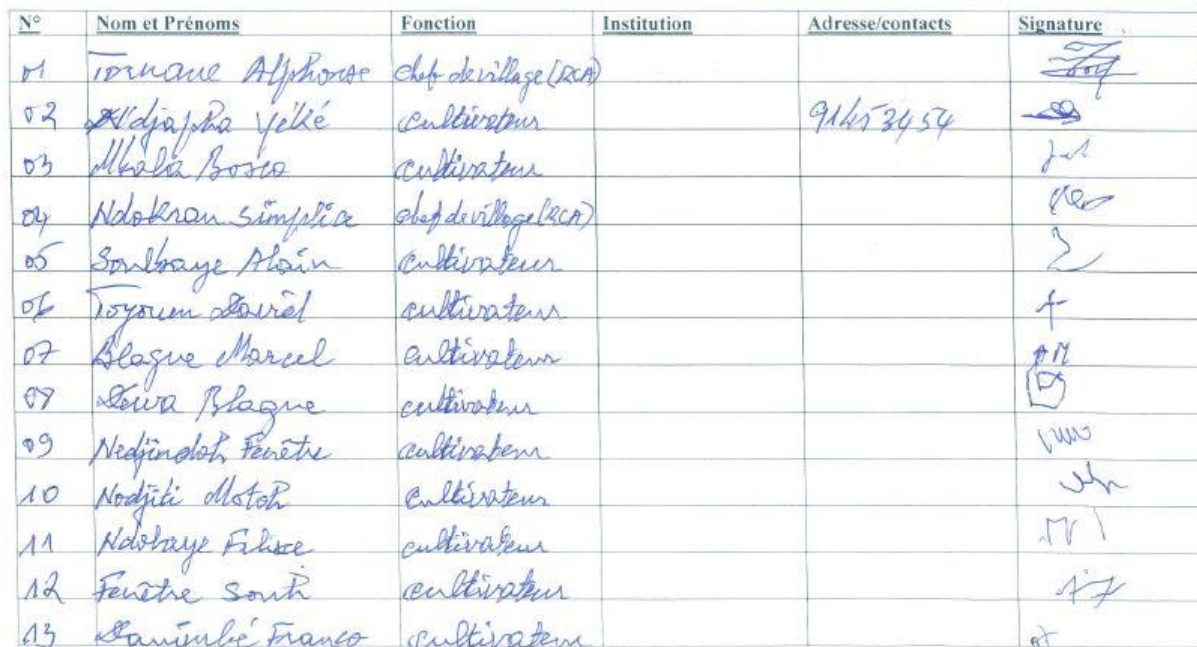 N° Nom et Prénoms Fonction Institution Adresse/contacts Signature
01 Tornane Alphonse chef de village (RCA)
02 N'djapha Yéké cultivateur 91453454
03 Mbala Bosco cultivateur
04 Ndokran Simplice chef de village (RCA)
05 Soulbaye Alain cultivateur
06 Toyoum David cultivateur
07 Blague Marcel cultivateur AM
08 Blague cultivateur
09 Nedjindoh Fenêtre cultivateur
10 Nodjiti Motoh cultivateur
11 Ndobaye cultivateur
12 Fenêtre South cultivateur
13 Franco cultivateur